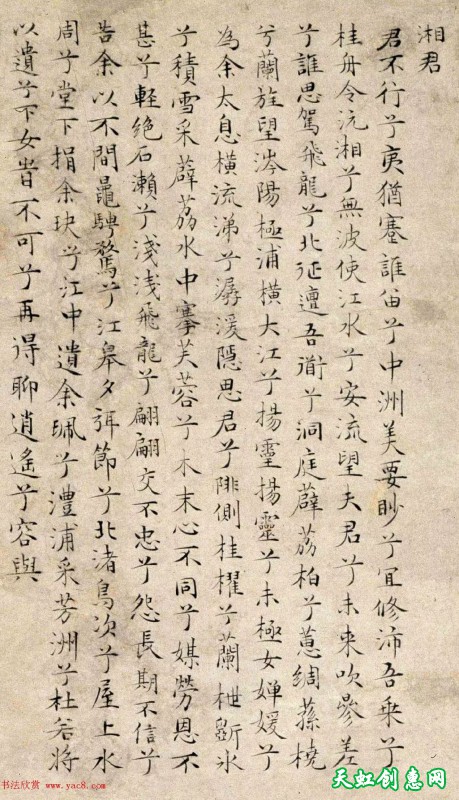 湘君
君不行兮夷猶蹇誰留兮中洲美要眇兮宜修沛吾乘兮
桂舟令沅湘兮無波使江水兮安流望夫君兮未来吹參差
兮誰思駕飛龍兮北征邅吾道兮洞庭薜荔柏兮蕙綢蓀橈
兮蘭旌望涔陽極浦橫大江兮揚靈揚靈兮未極女嬋媛兮
為余太息橫流涕兮潺湲隱思君兮陫側桂櫂兮蘭枻斲冰
兮積雪采薜荔水中搴芙蓉兮木末心不同兮媒勞恩不
甚兮輕絕石瀨兮淺淺飛龍兮翩翩交不忠兮怨長期不信兮
告余以不間鼂騁騖兮江皋夕弭節兮北渚鳥次兮屋上水
周兮堂下捐余玦兮江中遺余珮兮澧浦采芳洲兮杜若將
以遺兮下女旹不可兮再得聊逍遙兮容與
书法欣赏 www.yac8.com
天虹创惠网